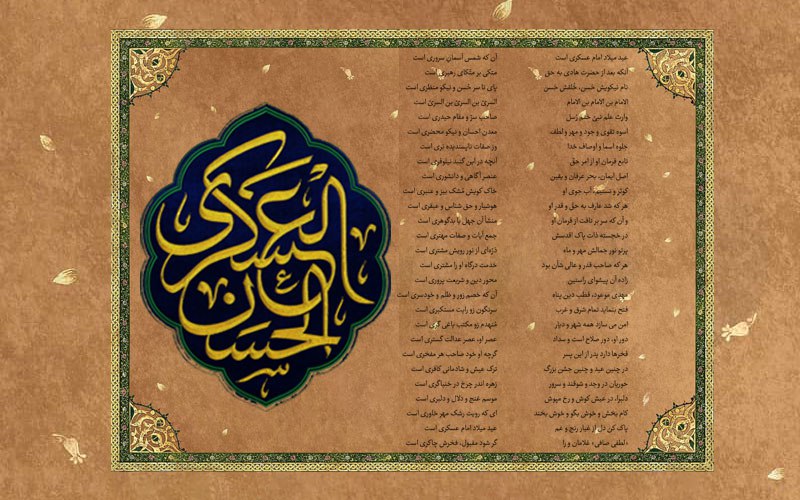 العسکری
عید میلاد امام عسکری است آن که شمس آسمان سروری است
آنکه بعد از حضرت هادی به حق متکی بر متّکای رهبری است
نام نیکویش حَسَن، خُلقش حَسَن پای تا سر حُسن و نیکو منظری است
الامام بن الامام بن الامام السریّ بن السریّ بن السریّ است
وارث علم نبیّ ختم رُسل صاحب سرّ و مقام حیدری است
اسوه تقوی و جود و مهر و لطف معدن احسان و نیکو محضری است
جلوه اسما و اوصاف خدا وز صفات ناپسندیده بَری است
تابع فرمان او از امر حقّ آنچه در این گنبد نیلوفری است
اصل ایمان، بحر عرفان و یقین عنصر آگاهی و دانشوری است
کوثر و تسنیم، آب جوی او خاک کویش مُشک بیز و عنبری است
هر که شد عارف به حقّ و قدر او هوشیار و حق شناس و عبقری است
و آن که سر بر تافت از فرمان او منشأ آن جهل یا بدگوهری است
در خجسته ذات پاک اقدسش جمع آیات و صفات مهتری است
پرتو نور جمالش مهر و ماه ذرّه‌ای از نور رویش مشتری است
هر که صاحب قدر و عالی شأن بود خدمت درگاه او را مشتری است
زاده آن پیشوای راستین محور دین و شریعت پروری است
مهدی موعود، قطب دین پناه آن که خصم زور و ظلم و خودسری است
فتح بنماید تمام شرق و غرب سرنگون زو رایت مستکبری است
امن می سازد همه شهر و دیار منهدم زو مکتب یاغی گری است
دور او، دور صلاح است و سداد عصر او، عصر عدالت گستری است
فخرها دارد پدر از این پسر گرچه او خود صاحب هر مفخری است
در چنین عید و چنین جشن بزرگ ترک عیش و شادمانی کافری است
حوریان در وجد و شوقند و سرور زهره اندر چرخ در خنیاگری است
دلبرا، در عیش کوش و رخ مپوش موسم غنج و دلال و دلبری است
کام بخش و خوش بگو و خوش بخند ای که رویت رشک مهر خاوری است
پاک کن دل از غبار رنج و غم عید میلاد امام عسکری است
«لطفی صافی» غلامان و را گر شود مقبول، فخرش چاکری است